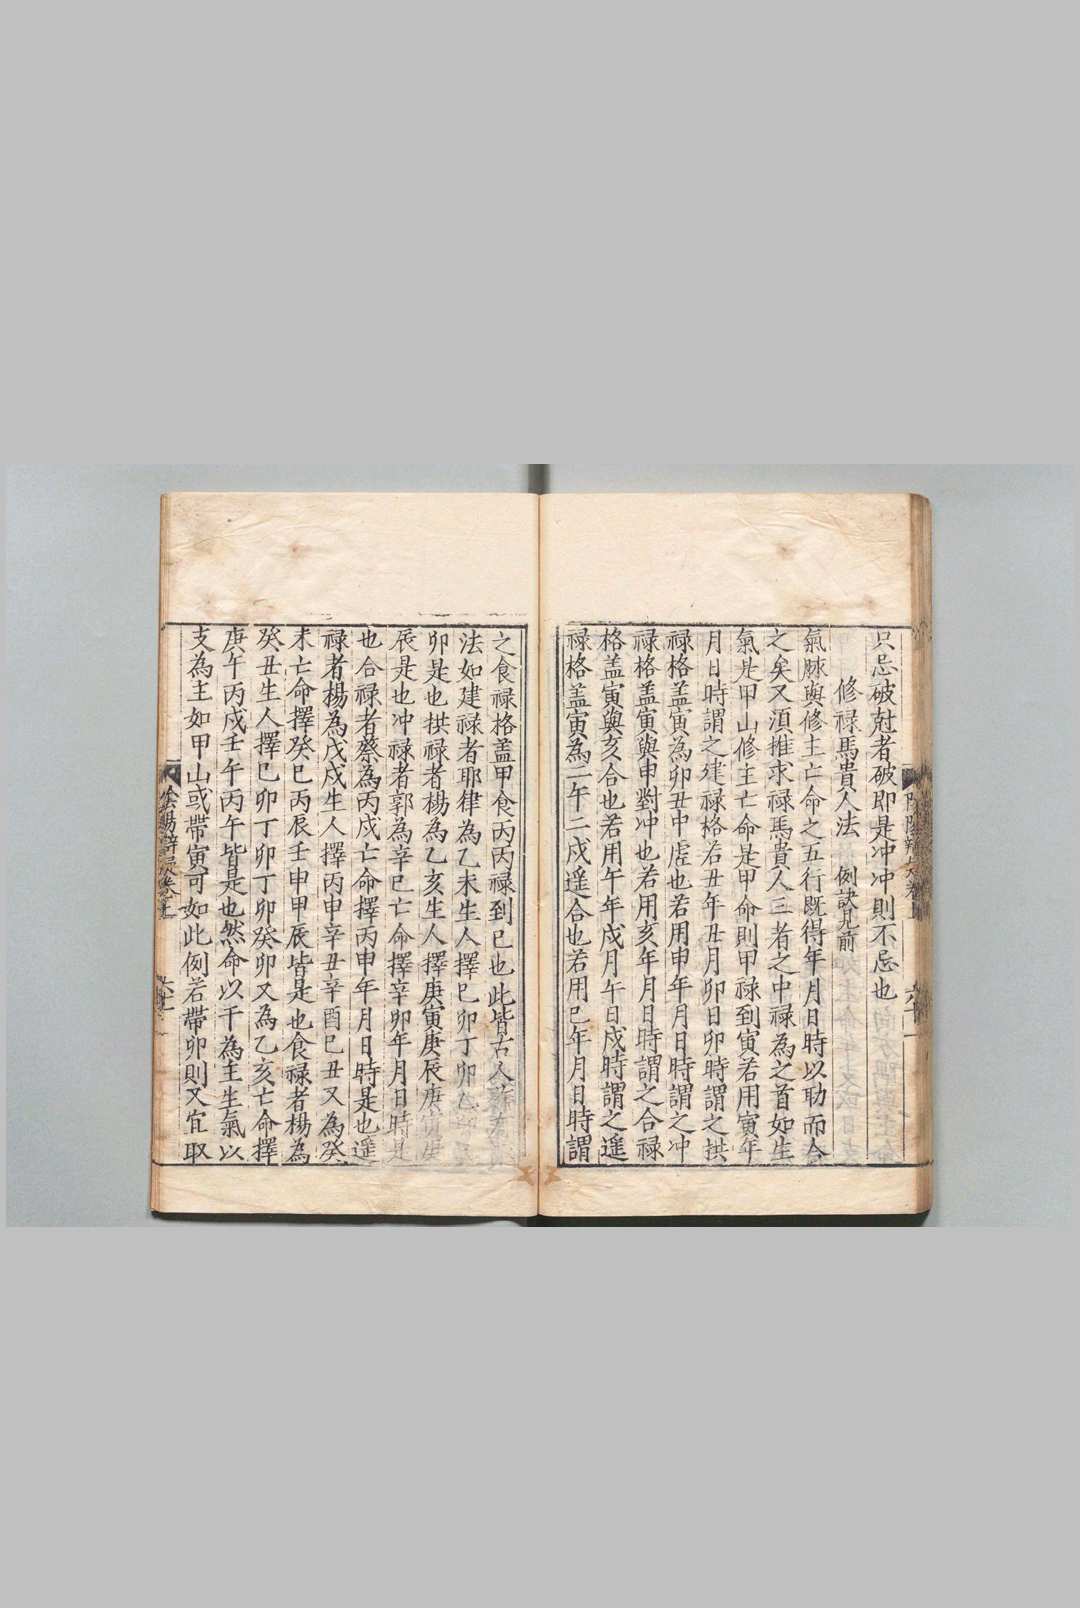 只忌破尅者破即是冲冲則不忌也
修禄馬貴人法 例訣見前
氣脉與修主亡命之五行既得年月日時以助而合
之矣又湏推求禄馬貴人三者之中禄為之首如生
氣是甲山修主亡命是甲命則甲禄到寅若用寅年
月日時謂之建禄格若丑年丑月卯日卯時謂之拱
禄格盖寅為卯丑中虗也若用申年月日時謂之冲
禄格盖寅與申對冲也若用亥年月日時謂之合禄
格盖寅與亥合也若用午年戌月午日戌時謂之遥
禄格盖寅為二午二戌遥合也若用巳年月日時謂
之食禄格盖甲食丙丙禄到巳也此皆古人
法如建禄者耶律為乙未生人擇巳卯丁卯乙
卯是也拱禄者楊為乙亥生人擇庚寅庚辰庚寅庚
辰是也冲禄者郭為辛巳亡命擇辛卯年月日時是
也合禄者蔡為丙戌亡命擇丙申年月日時是也遥
禄者楊為戊戌生人擇丙申辛丑辛酉巳丑又為癸
未亡命擇癸巳丙辰壬申甲辰皆是也食禄者楊為
癸丑生人擇巳卯丁卯丁卯癸卯又為乙亥亡命擇
庚午丙戌壬午丙午皆是也然命以干為主生氣以
支為主如甲山或帶寅可如此例若帶卯則又宜取